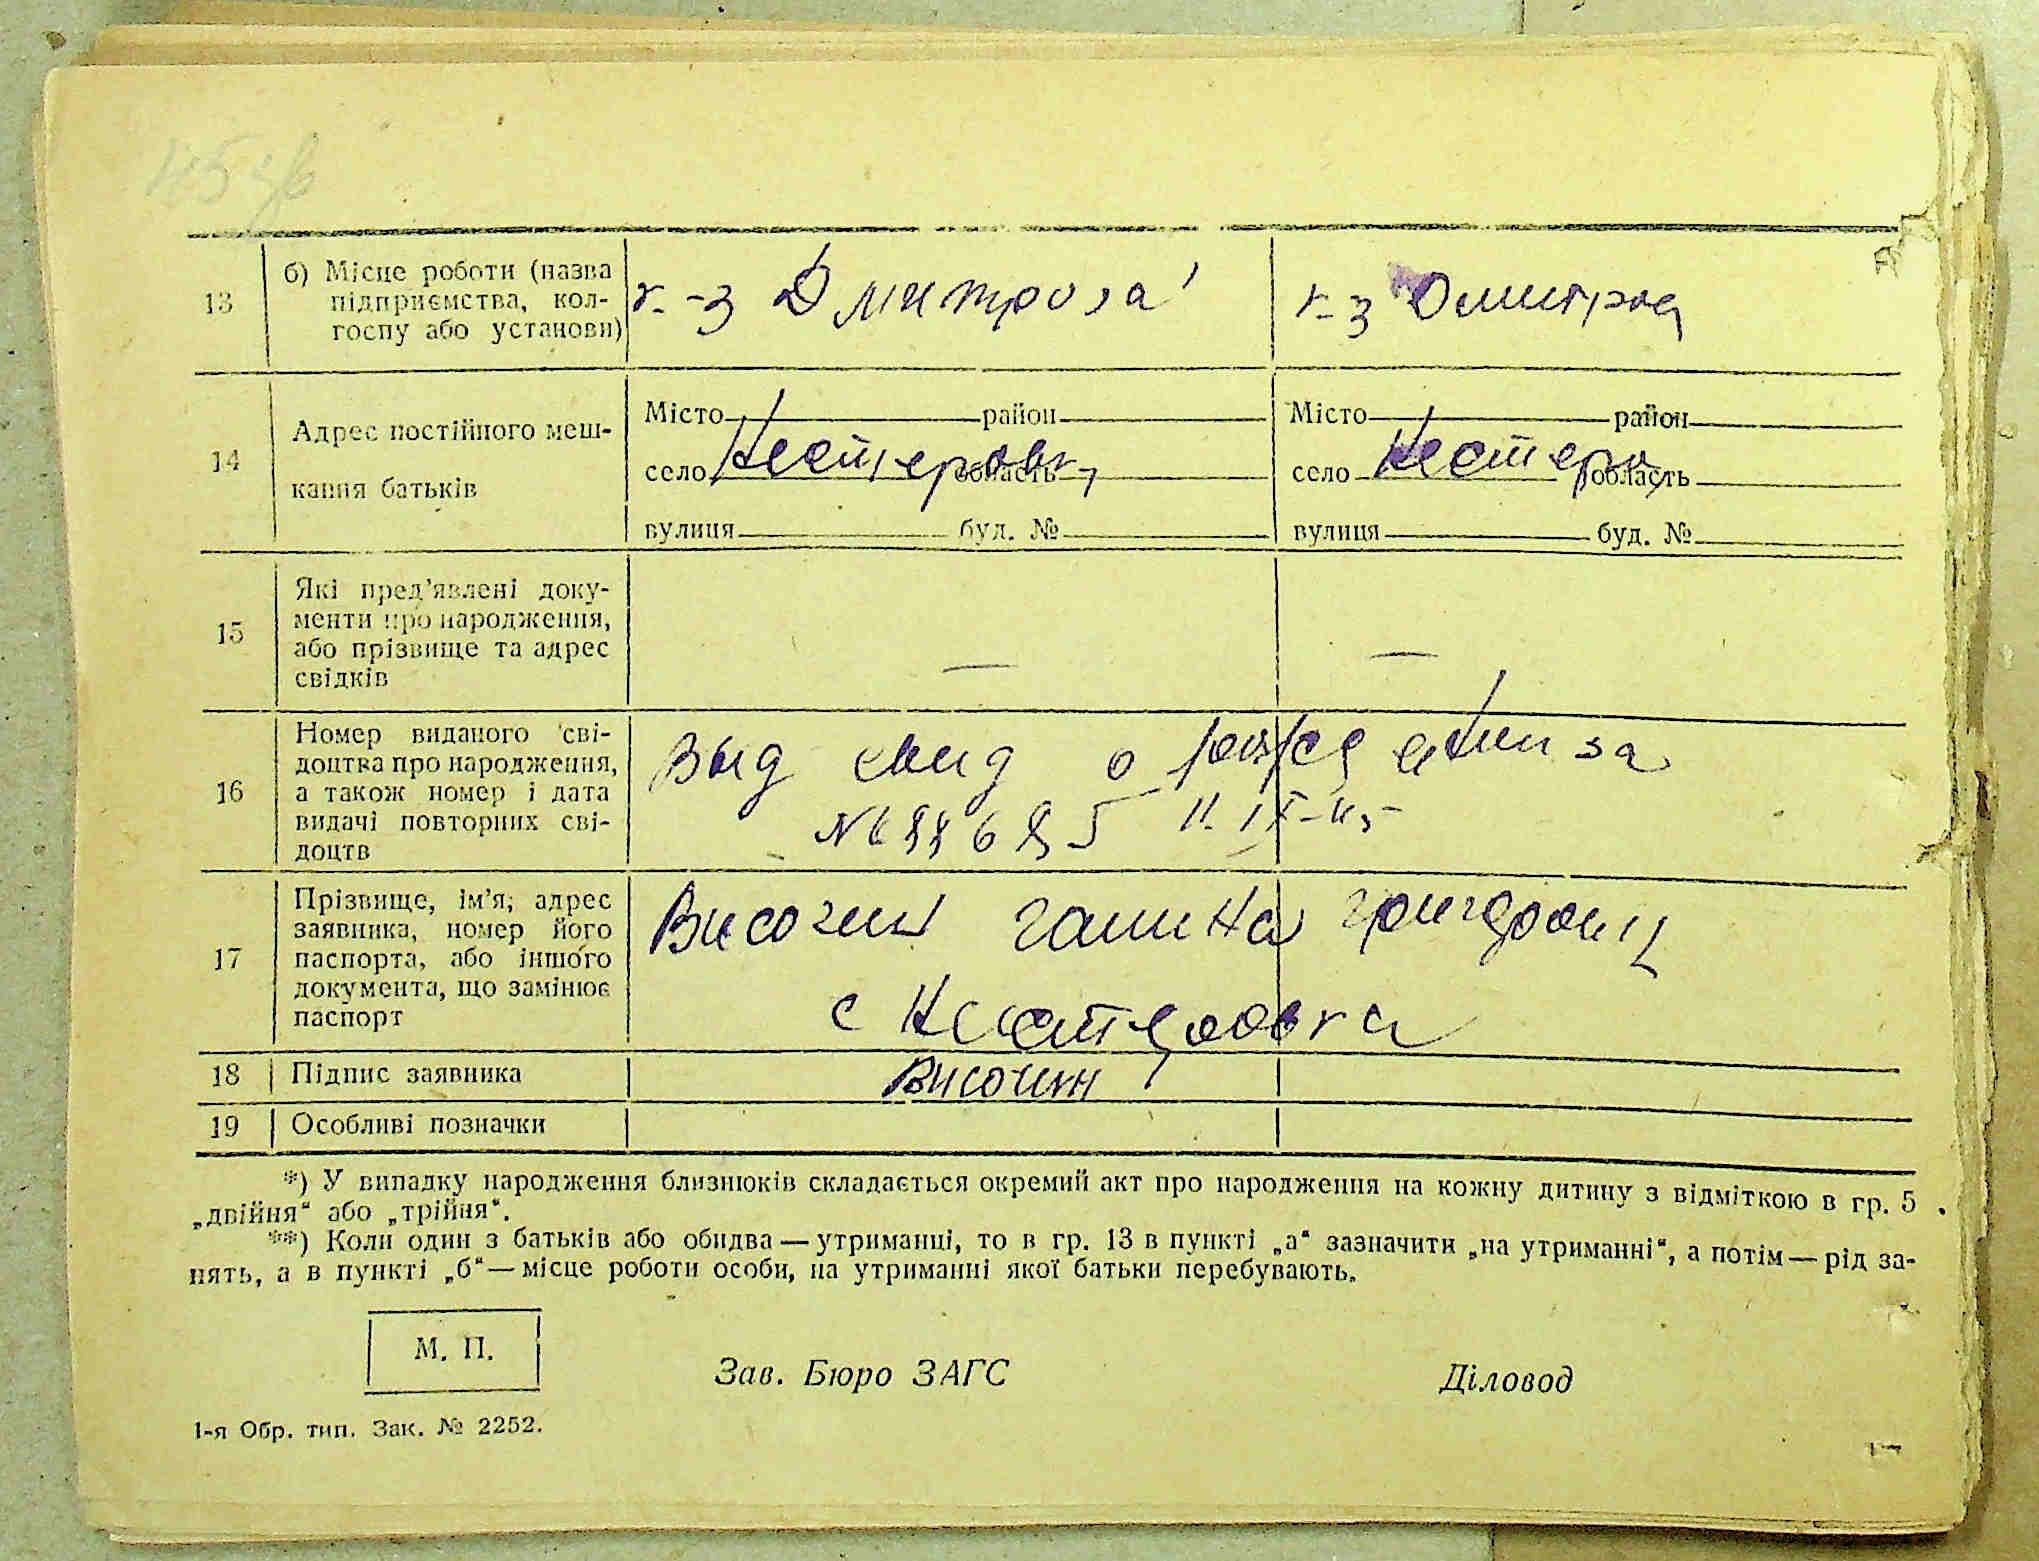 45 зв
13 б) Місце роботи (назва
підприємства, кол-
госпу або установи)
к-з Димитрова к-з Димитрова
14 Адрес постійного меш-
кання батьків
Місто район Місто район
село Нестеровка область село Нестеров область
вулиця буд. № вулиця буд. №
15 Які пред'явлені доку-
менти про народження,
або прізвище та адрес
свідків
— —
16 Номер виданого сві-
доцтва про народження,
а також номер і дата
видачі повторних сві-
доцтв
Выд свид о за
№ 11-IX-45
17 Прізвище, ім'я, адрес
заявника, номер його
паспорта, або іншого
документа, що замінює
паспорт
Височин Галина
с Нестеровка
18 Підпис заявника Височин
19 Особливі позначки
*) У випадку народження близнюків складається окремий акт про народження на кожну дитину з відміткою в гр. 5
„двійня“ або „трійня“.
**) Коли один з батьків або обидва — утриманці, то в гр. 13 в пункті „а“ зазначити „на утриманні“, а потім — рід за-
нять, а в пункті „б“ — місце роботи особи, на утриманні якої батьки перебувають.
М. П.
Зав. Бюро ЗАГС Діловод
1-я Обр. тип. Зак. № 2252.